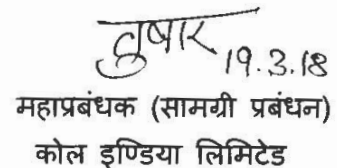 तुषार
19.3.18
महाप्रबंधक (सामग्री प्रबंधन)
कोल इण्डिया लिमिटेड